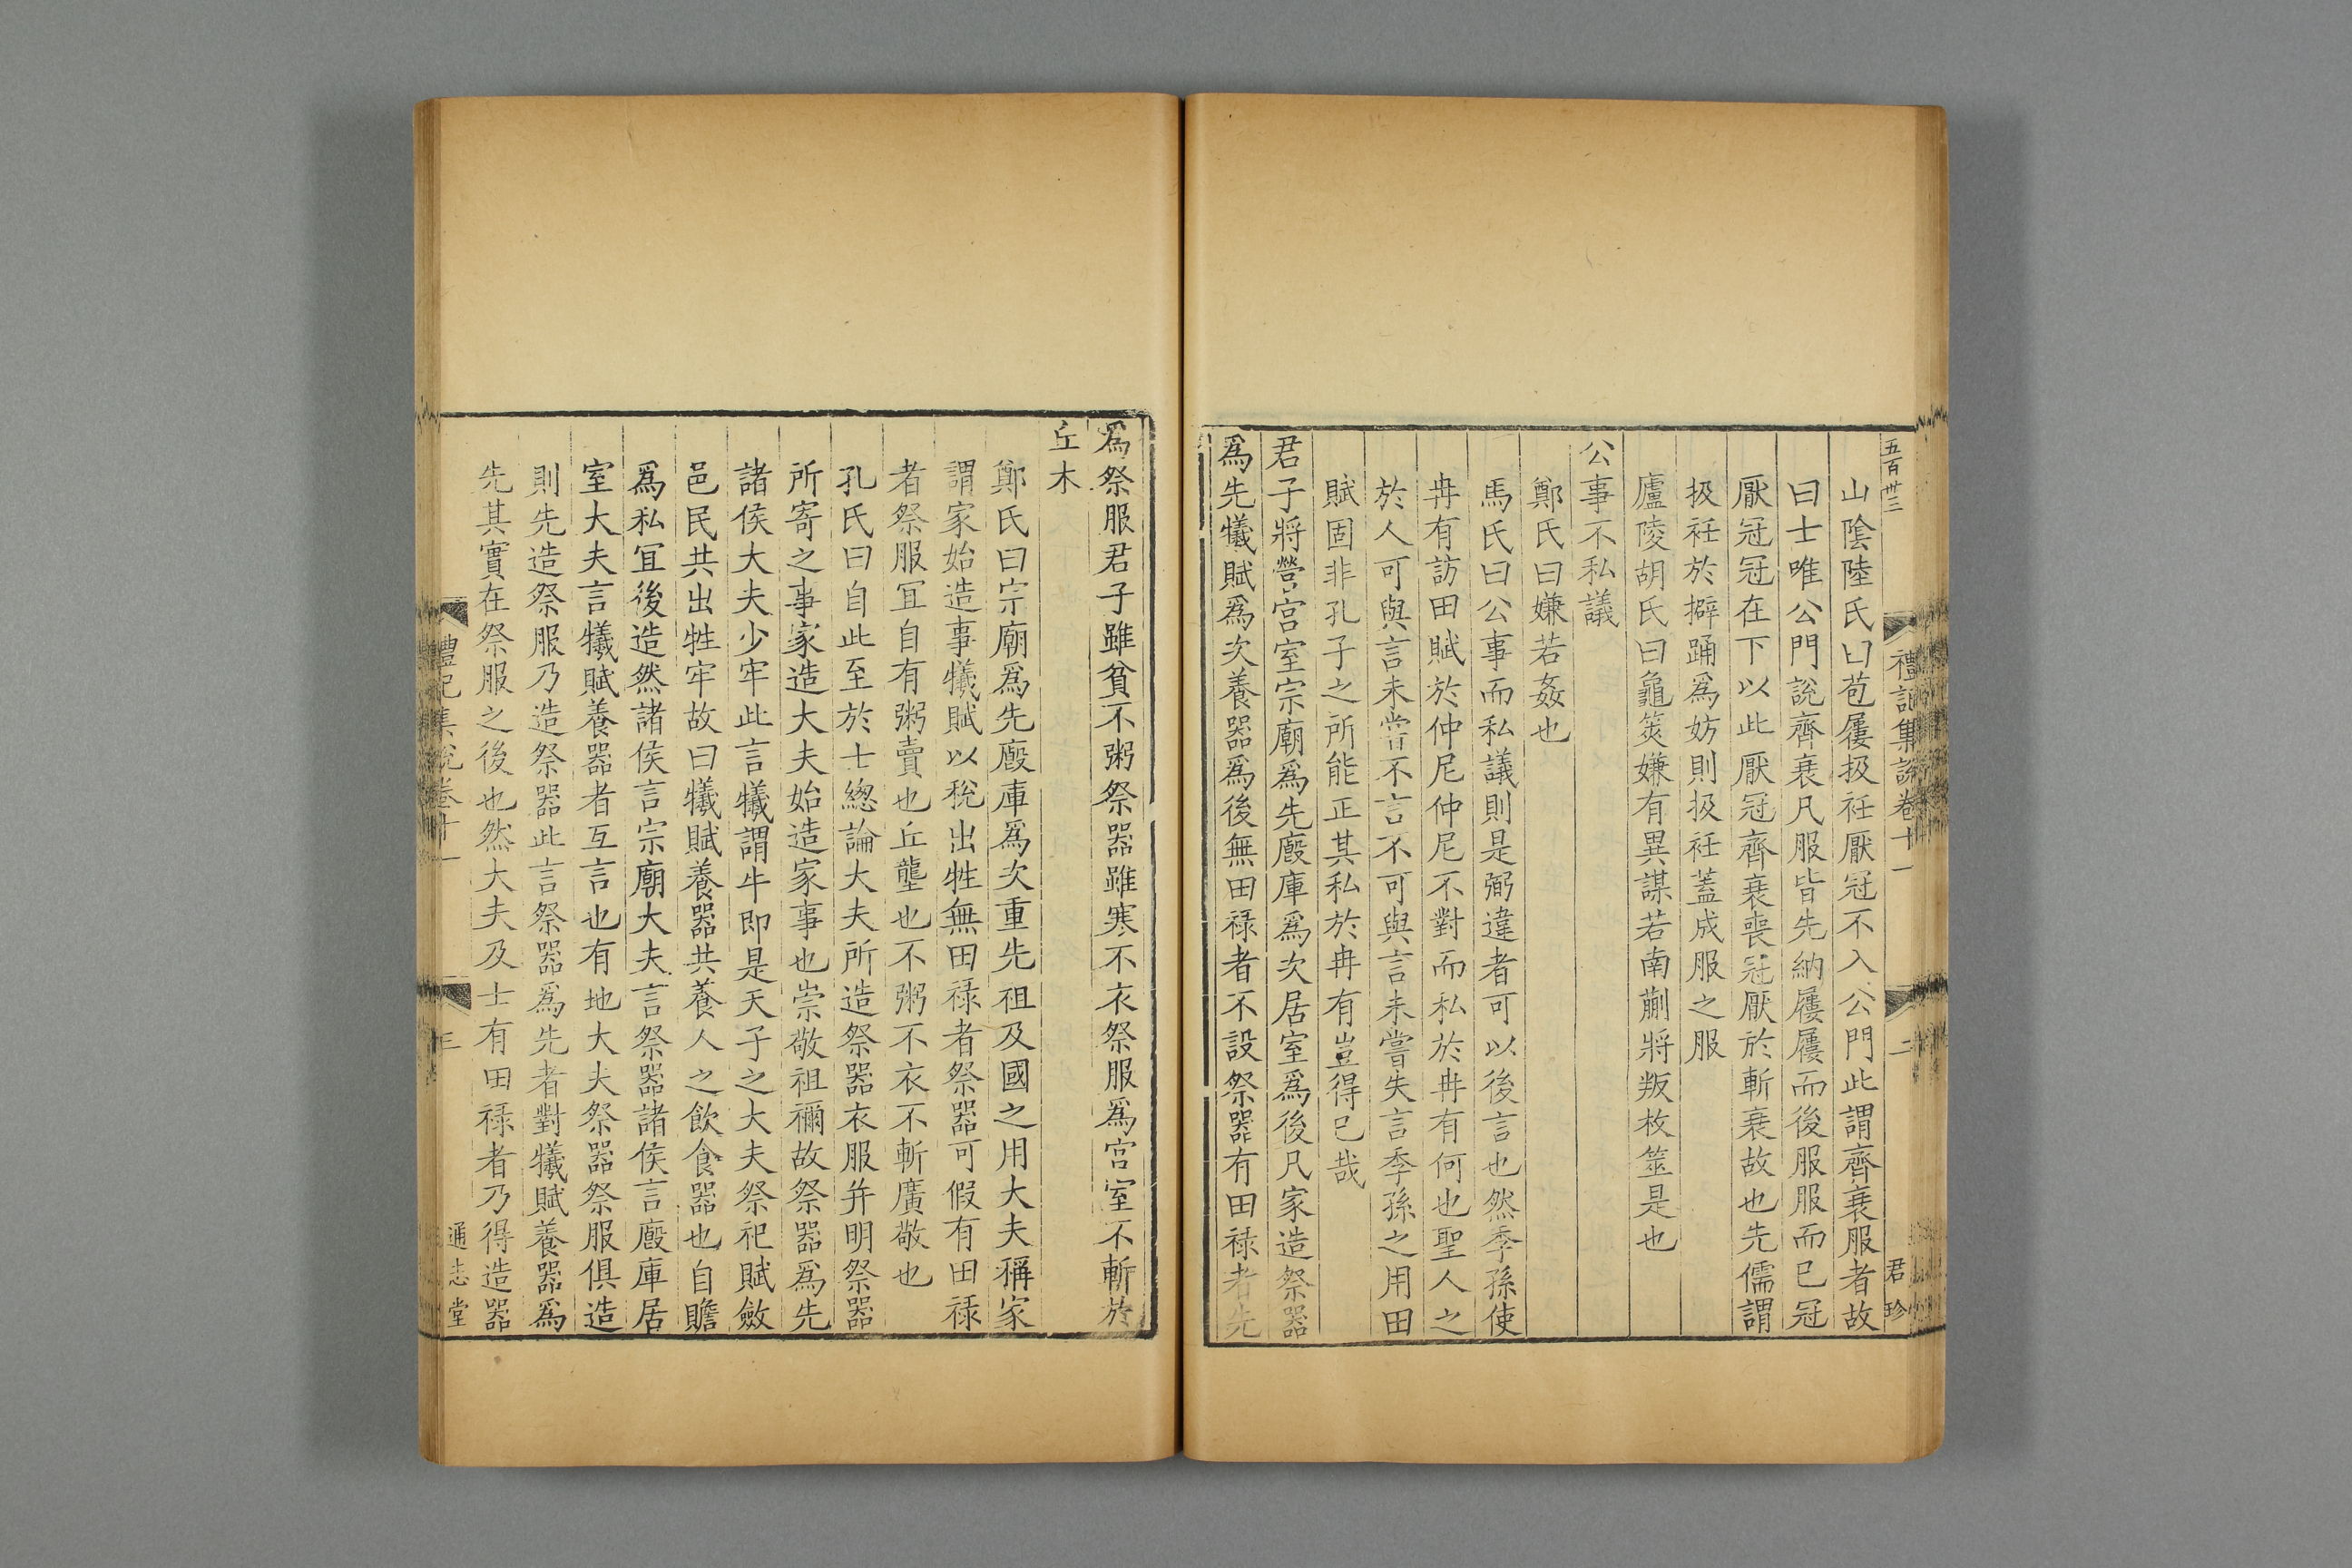 五百卅三
禮記集說卷十一
二
君珍
山陰陸氏曰苞屨扱衽厭冠不入公門此謂齊衰服者故
曰士唯公門說齊衰凡服皆先納屨屨而後服服而已冠
厭冠冠在下以此厭冠齊衰喪冠厭於斬衰故也先儒謂
扱衽於擗踊爲妨則扱衽蓋成服之服
廬陵胡氏曰龜筴嫌有異謀若南蒯將叛枚筮是也
公事不私議
鄭氏曰嫌若姦也
馬氏曰公事而私議則是弼違者可以後言也然季孫使
冉有訪田賦於仲尼仲尼不對而私於冉有何也聖人之
於人可與言未嘗不言不可與言未嘗失言季孫之用田
賦固非孔子之所能正其私於冉有豈得已哉
君子將營宮室宗廟爲先廄庫爲次居室爲後凡家造祭器
爲先犧賦爲次養器爲後無田祿者不設祭器有田祿者先
爲祭服君子雖貧不粥祭器雖寒不衣祭服爲宮室不斬於
丘木
鄭氏曰宗廟爲先廄庫爲次重先祖及國之用大夫稱家
謂家始造事犧賦以稅出牲無田祿者祭器可假有田祿
者祭服冝自有粥賣也丘壟也不粥不衣不斬廣敬也
孔氏曰自此至於士緫論大夫所造祭器衣服幷明祭器
所寄之事家造大夫始造家事也崇敬祖禰故祭器爲先
諸侯大夫少牢此言犧謂牛即是天子之大夫祭祀賦斂
邑民共出牲牢故曰犧賦養器共養人之飲食器也自贍
爲私冝後造然諸侯言宗廟大夫言祭器諸侯言廄庫居
室大夫言犧賦養器者互言也有地大夫祭器祭服俱造
則先造祭服乃造祭器此言祭器爲先者對犧賦養器爲
先其實在祭服之後也然大夫及士有田祿者乃得造器
禮記集說卷十一
三
通志堂